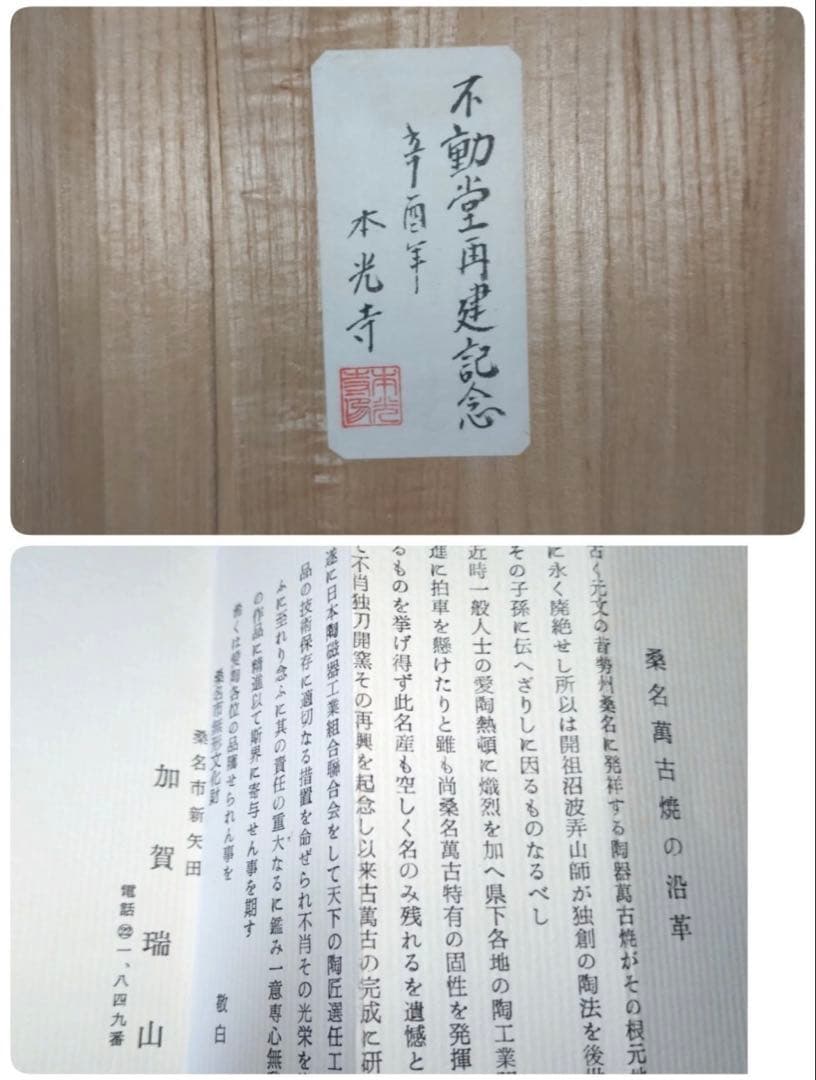 不動堂再建記念
辛酉年
本光寺
桑名萬古焼の沿革
古く元文の昔勢州桑名に発祥する陶器萬古焼がその根元地
に永く廃絶せし所以は開祖沼波弄山師が独創の陶法を後世
その子孫に伝へざりしに因るものなるべし
近時一般人士の愛陶熱頓に熾烈を加へ県下各地の陶工業
進に拍車を懸けたりと雖も尚桑名萬古特有の固性を発揮
るものを挙げ得ず此名産も空しく名のみ残れるを遺憾と
不肖独刀開窯その再興を起念し以来古萬古の完成に研
遂に日本陶磁器工業組合聯合会をして天下の陶匠選任工
品の技術保存に適切なる措置を命ぜられ不肖その光栄を
ふに至れり念ふに其の責任の重大なるに鑑み一意専心無
の作品に精進以て斯界に寄与せん事を期す
希くは愛陶各位の品騭せられん事を
敬白
桑名市無形文化財
桑名市新矢田
加賀瑞山
電話㉒一、八四九番